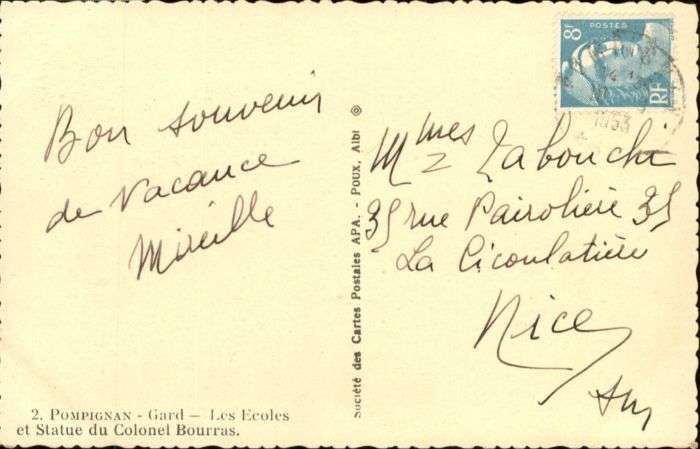 Bon souvenir
de Vacance
Mireille
2. POMPIGNAN - Gard — Les Ecoles
et Statue du Colonel Bourras.
Société des Cartes Postales APA. - POUX, Albi ©
8F POSTES
RF
1953
Mmes Labouche
35 rue Pairolière 35
La Cicoulatière
Nice